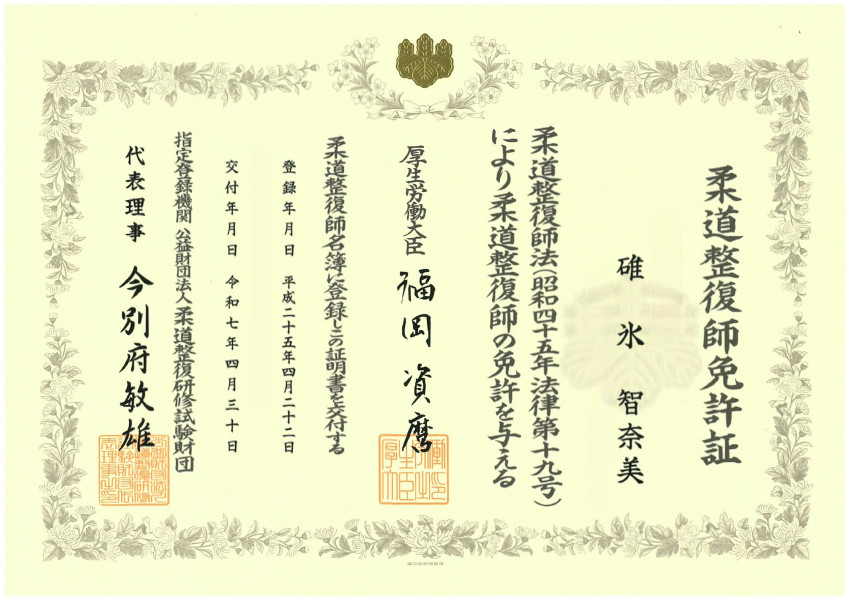 柔道整復師免許証
碓氷智奈美
柔道整復師法(昭和四十五年法律第十九号)
により柔道整復師の免許を与える
厚生労働大臣 福岡資麿
柔道整復師名簿に登録しこの証明書を交付する
登録年月日 平成二十五年四月二十二日
交付年月日 令和七年四月三十日
指定登録機関 公益財団法人柔道整復研修試験財団
代表理事 今別府敏雄